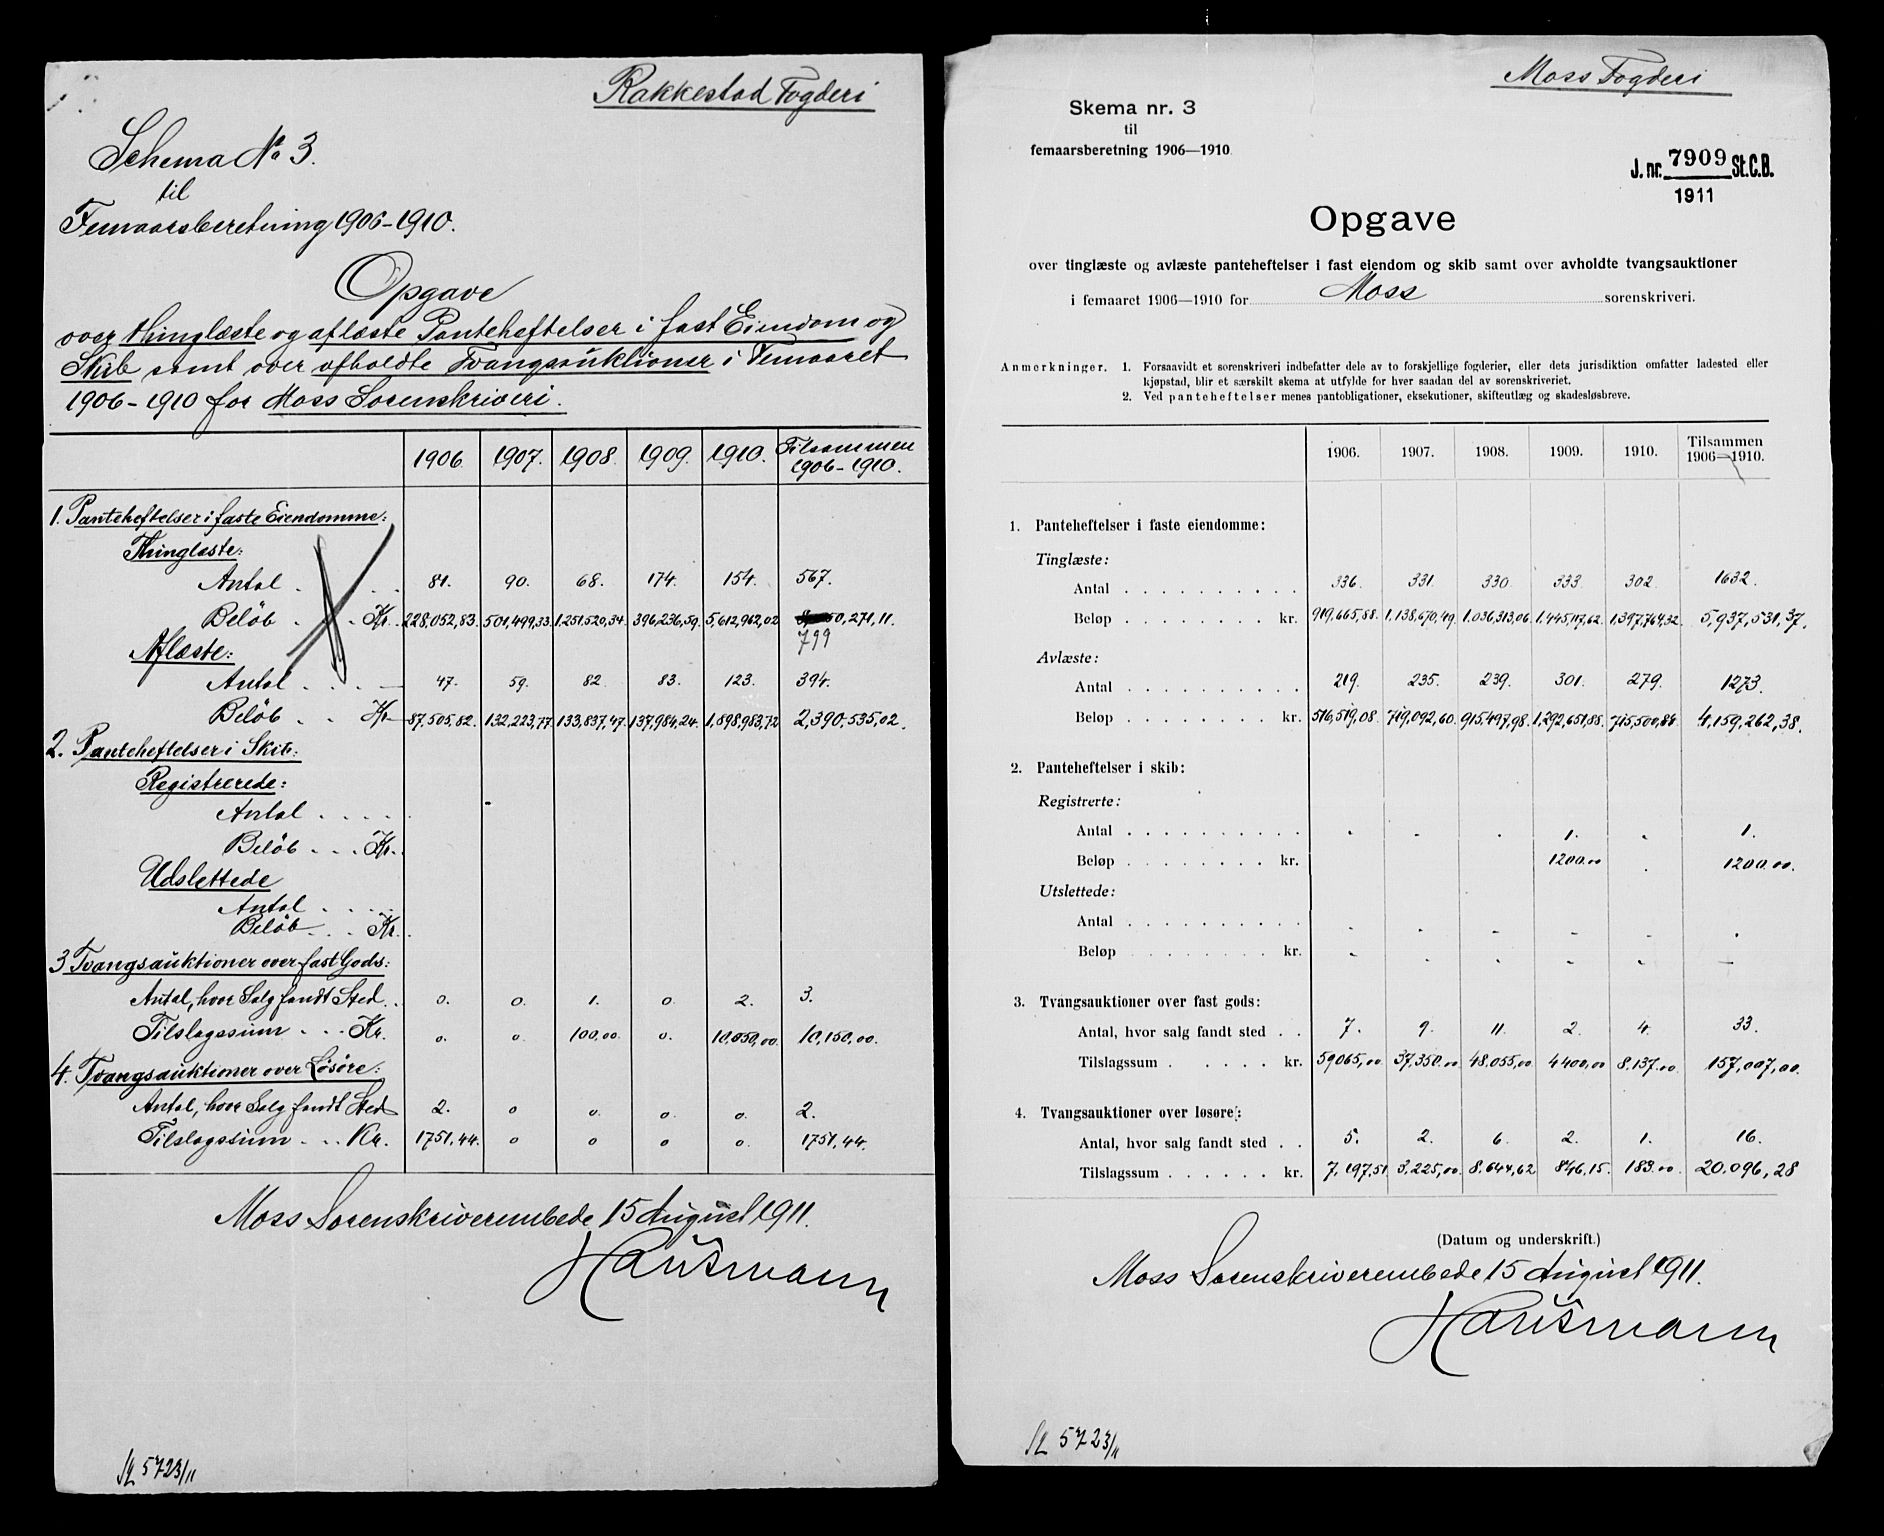 Rakkestad Fogderi
Schema No 3.
til
Femaarsberetning 1906-1910.
Opgave
over thinglæste og aflæste Panteheftelser i fast Eiendom og
Skib samt over afholdte Tvangsauktioner i Femaaret
1906-1910 for Moss Sorenskriveri.
1906. 1907. 1908. 1909. 1910. Tilsammen 1906-1910.
1. Panteheftelser i faste Eiendomme:
Thinglæste:
Antal . . . . 81. 90. 68. 174. 154. 567.
Beløb . . Kr. 228,052,83. 501,499,33. 1,251,520,34. 396,236,59. 5,612,962,02 50,271,11.
799
Aflæste:
Antal . . . . 47. 59. 82. 83. 123. 394.
Beløb . . Kr 87,505,82. 132,223,77. 133,837,47. 137,984,24. 1,898,983,72 2,390,535,02.
2. Panteheftelser i Skib:
Registrerede:
Antal . . . . .
Beløb . . . Kr.
Udslettede
Antal . . . .
Beløb . . . Kr.
3 Tvangsauktioner over fast Gods:
Antal, hvor Salg fandt Sted . . 0. 0. 1. 0. 2. 3.
Tilslagssum . . . Kr. 0. 0. 100,00. 0. 10,050,00 10,150,00.
4. Tvangsauktioner over Løsøre:
Antal, hvor Salg fandt Sted 2. 0 0. 0. 0. 2.
Tilslagssum . . . Kr. 1751,44. 0 0 0 0. 1751,44.
Moss Sorenskriverembede 15 August 1911.
Hausmann
5723/11
Moss Fogderi
Skema nr. 3
til
femaarsberetning 1906—1910.
J. nr. 7909 St.C.B.
1911
Opgave
over tinglæste og avlæste panteheftelser i fast eiendom og skib samt over avholdte tvangsauktioner
i femaaret 1906—1910 for Moss sorenskriveri.
Anmerkninger. 1. Forsaavidt et sorenskriveri indbefatter dele av to forskjellige fogderier, eller dets jurisdiktion omfatter ladested eller
kjøpstad, blir et særskilt skema at utfylde for hver saadan del av sorenskriveriet.
2. Ved panteheftelser menes pantobligationer, eksekutioner, skifteutlæg og skadesløsbreve.
1906. 1907. 1908. 1909. 1910. Tilsammen 1906—1910.
1. Panteheftelser i faste eiendomme:
Tinglæste:
Antal . . . . . . . . . . 336. 331. 330. 333. 302. 1632.
Beløp . . . . . . . . kr. 919,665,88. 1,138,670,49. 1.036,313,06. 1.445,117,62. 1,397,764,32. 5,937,531,37.
Avlæste:
Antal . . . . . . . . . . 219. 235. 239. 301. 279. 1273.
Beløp . . . . . . . . kr. 516,519,08. 719,092,60. 915,497,98. 1,292,651,88. 715,500,84. 4,159,262,38.
2. Panteheftelser i skib:
Registrerte:
Antal . . . . . . . . . . - - . 1. . 1.
Beløp . . . . . . . . kr. 1200.00 . 1200.00.
Utslettede:
Antal . . . . . . . . . . - - - - - -
Beløp . . . . . . . . kr. - - - - - —
3. Tvangsauktioner over fast gods:
Antal, hvor salg fandt sted . . 7. 9. 11. 2. 4. 33.
Tilslagssum . . . . . kr. 59065,00. 37,350.00 48.055,00 4400,00 8.137.00 157,007,00.
4. Tvangsauktioner over løsøre:
Antal, hvor salg fandt sted . . 5. 2. 6. 2. 1. 16.
Tilslagssum . . . . . . kr. 7,197,51 3,225,00. 8.644,62 846,15. 183.00. 20.096,28
(Datum og underskrift.)
Moss Sorenskriverembede 15 August 1911.
Hausmann
5723/11